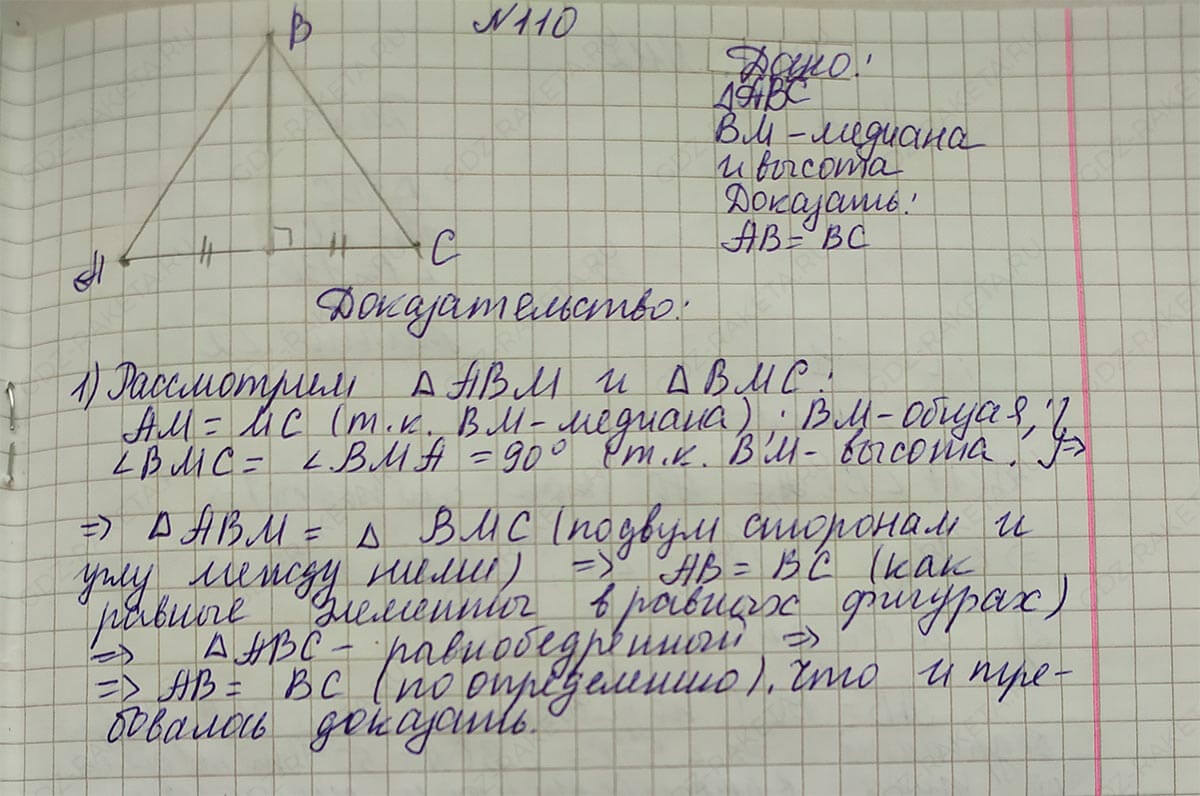 N110
B
A
C
Дано:
△ABC
BM - медиана
и высота
Доказать:
AB = BC
Доказательство:
1) Рассмотрим △ABM и △BMC:
AM = MC (т.к. BM - медиана); BM - общая;
∠BMC = ∠BMA = 90° (т.к. BM - высота. } =>
=> △ABM = △ BMC (по двум сторонам и
углу между ними) => AB = BC (как
равные элементы в равных фигурах)
=> △ABC - равнобедренный =>
=> AB = BC (по определению). Что и тре-
бовалось доказать.